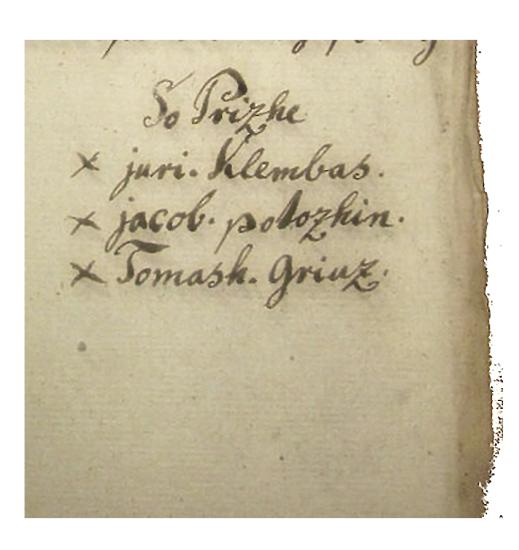 So Prizhe
x juri. Klembas.
x jacob. potozhin.
x Tomash. Griuz.